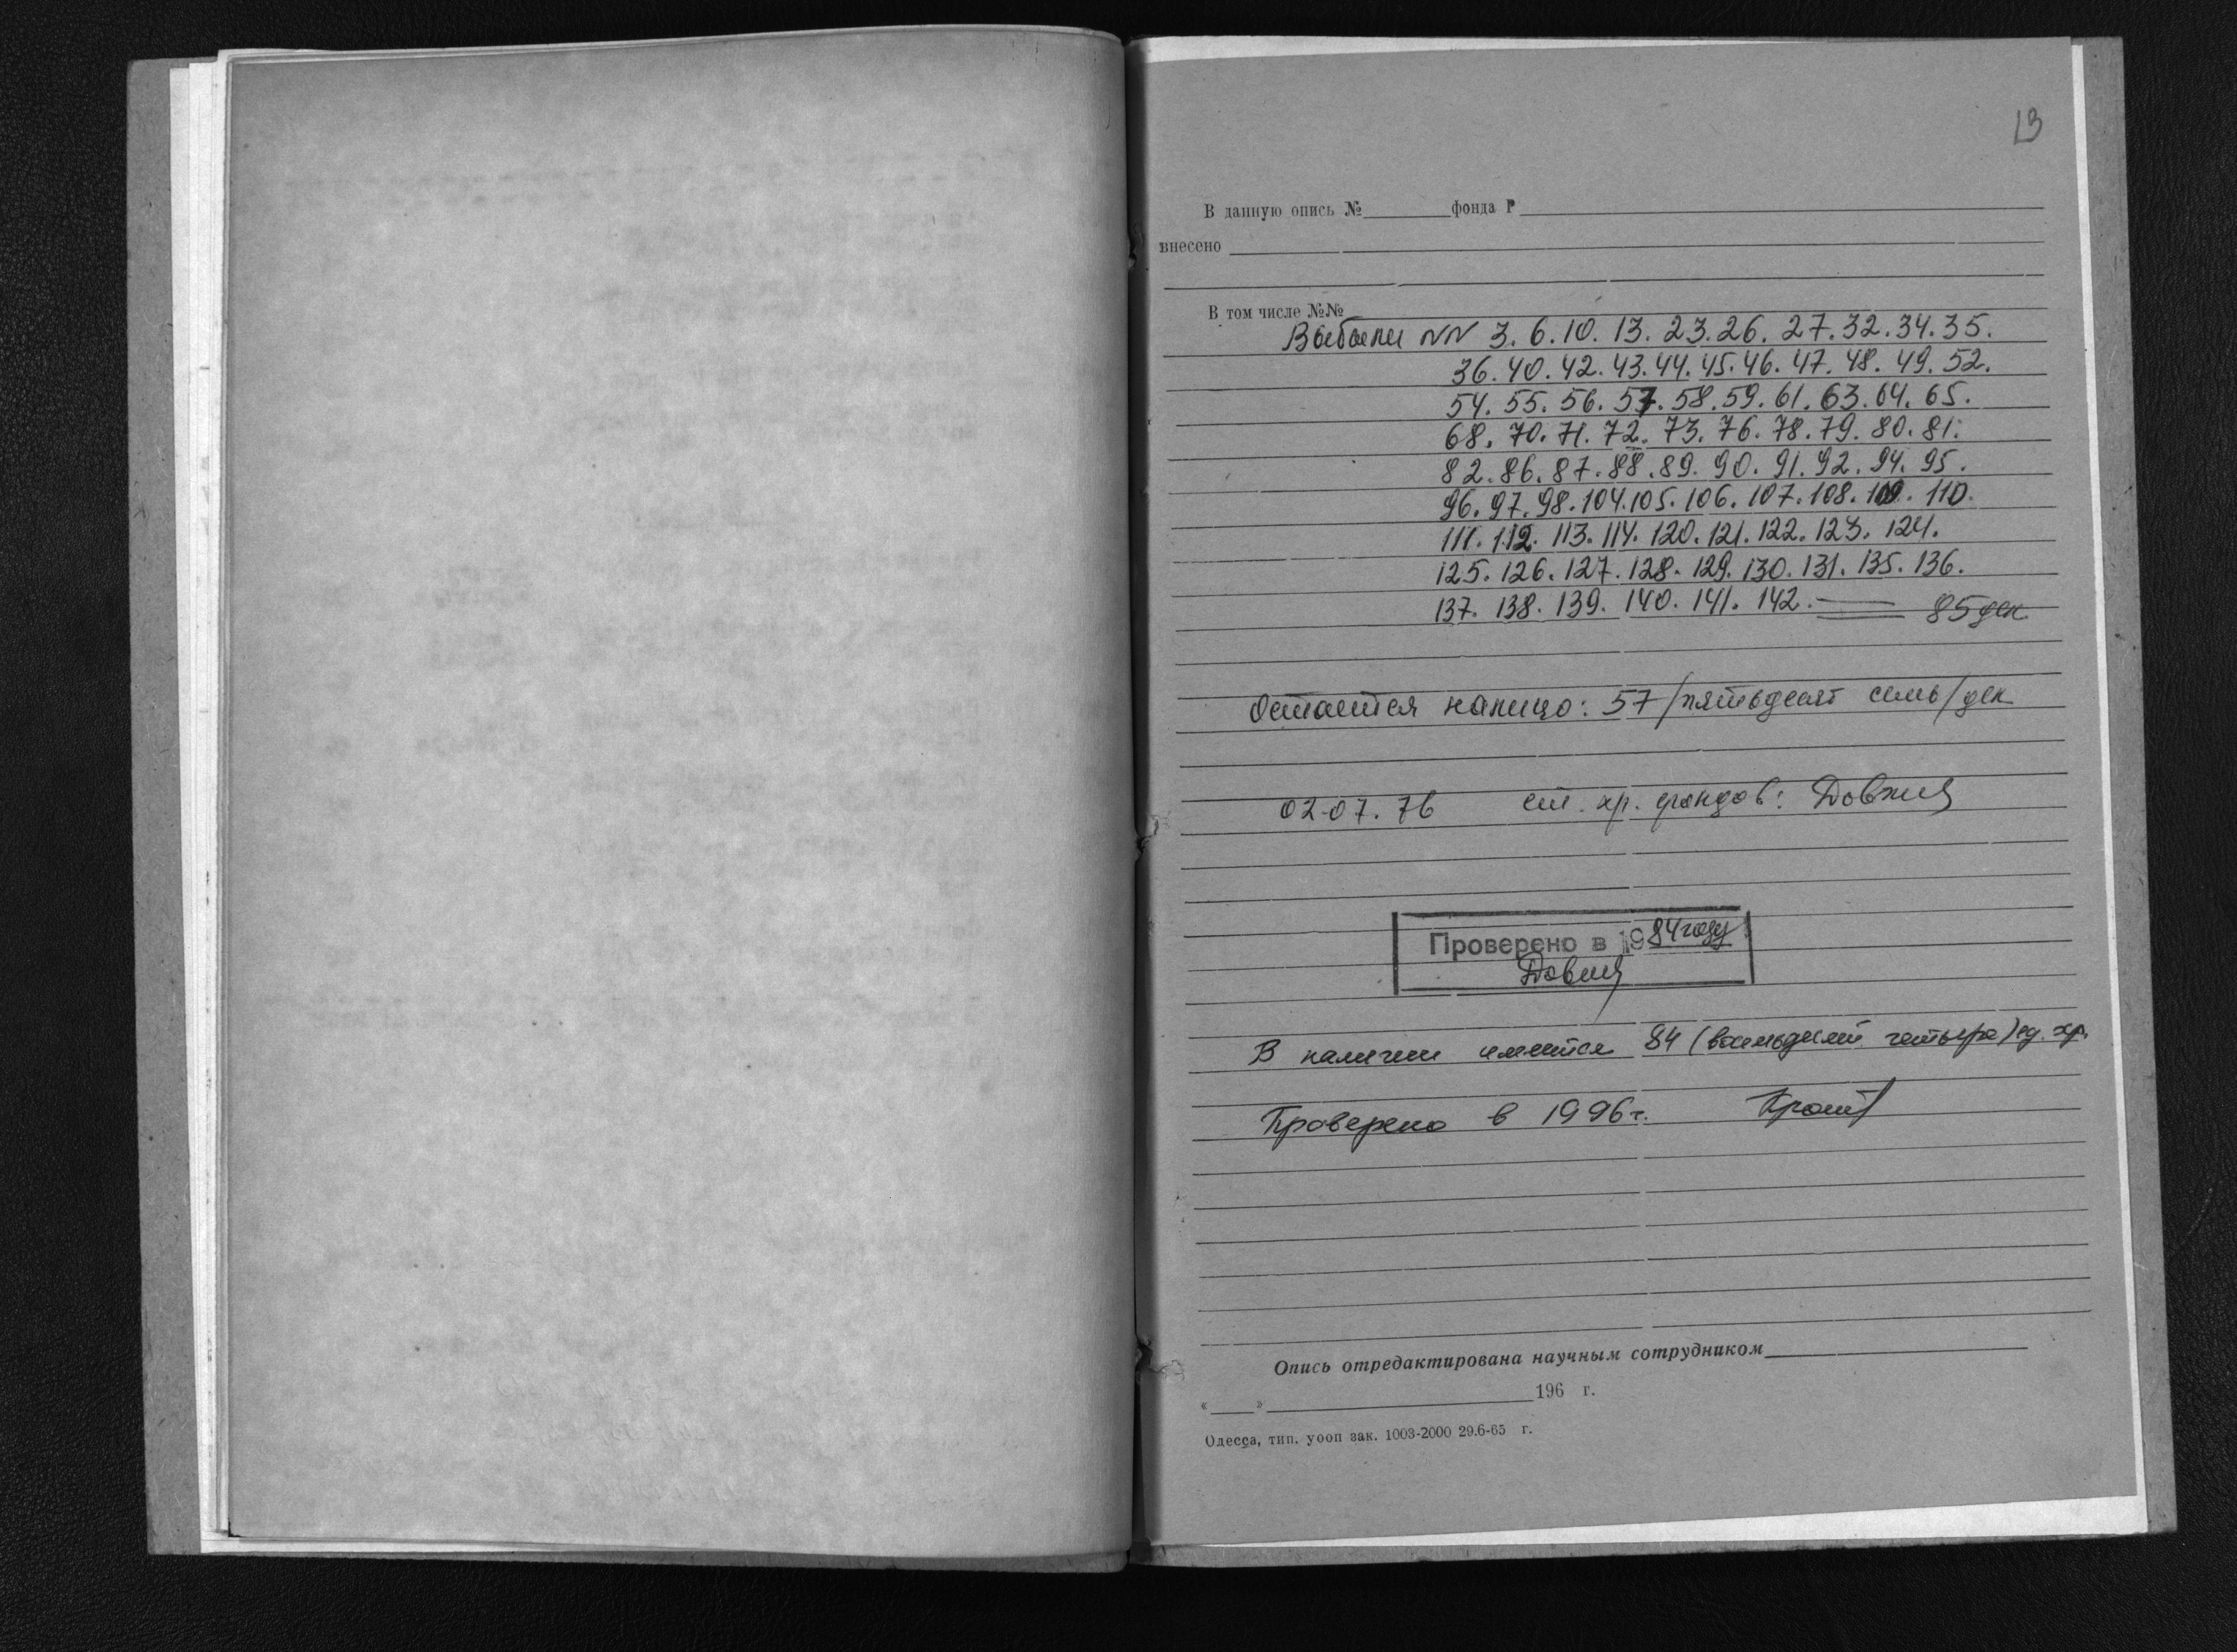 13
В данную опись №________фонда Р
внесено
В том числе №№
Выбыли NN 3. 6. 10. 13. 23. 26. 27. 32. 34. 35.
36. 40. 42. 43. 44. 45. 46. 47. 48. 49. 52.
54. 55. 56. 57. 58. 59. 61. 63. 64. 65.
68. 70. 71. 72. 73. 76. 78. 79. 80. 81.
82. 86. 87. 88. 89. 90. 91. 92. 94. 95.
96. 97. 98. 104. 105. 106. 107. 108. 109. 110.
111. 112. 113. 114. 120. 121. 122. 123. 124.
125. 126. 127. 128. 129. 130. 131. 135. 136.
137. 138. 139. 140. 141. 142. 85 дел
Остается налицо: 57 /пятьдесят семь/ дел
02.07.76 ст. хр. фондов:
Проверено в 1984 году
В наличии имеется 84 (восемьдесят четыре) ед. хр.
Проверено в 1996 г.
Опись отредактирована научным сотрудником
«____»____________________196 г.
Одесса, тип. уооп зак. 1003-2000 29.6-65 г.